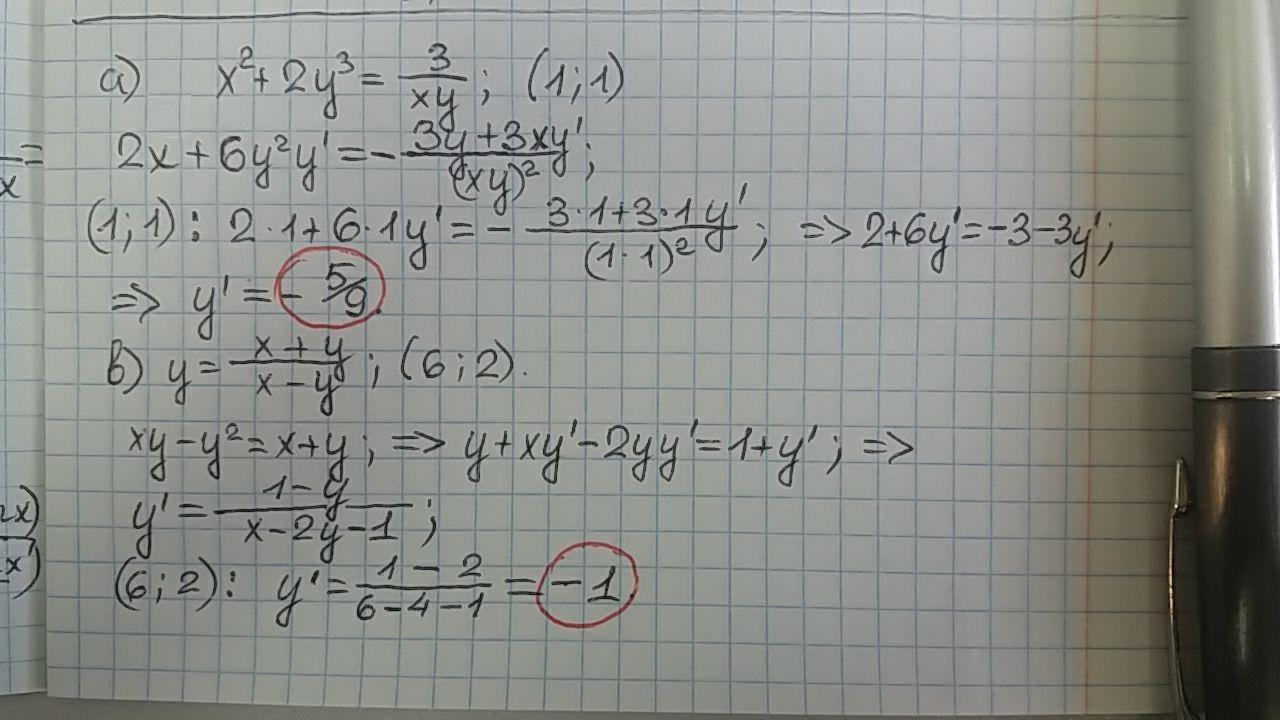 а) x²+2y³=3/(xy); (1;1)
2x+6y²y'=-(3y+3xy')/(xy)²;
(1;1): 2·1+6·1y'=-(3·1+3·1y')/(1·1)²; => 2+6y'=-3-3y';
=> y'=-5/9.
в) y=(x+y)/(x-y); (6;2).
xy-y²=x+y; => y+xy'-2yy'=1+y'; =>
y'=(1-y)/(x-2y-1);
(6;2): y'=(1-2)/(6-4-1)=-1